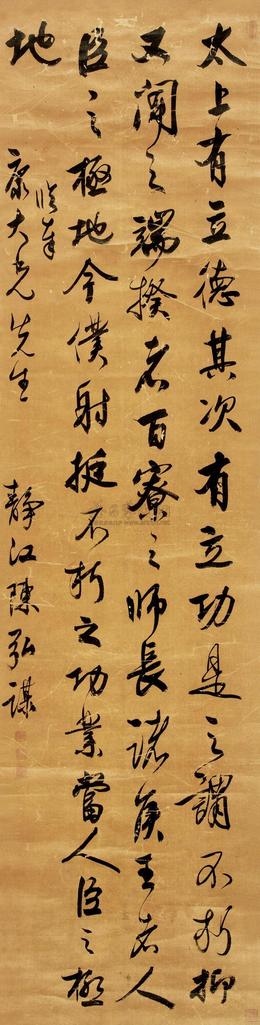 太上有立德其次有立功是之謂不朽抑
又聞之端揆者百寮之師長諸侯王者人
臣之極地今僕射挺不朽之功業當人臣之極
地
臨奉
康大兄先生
靜江陳弘謀